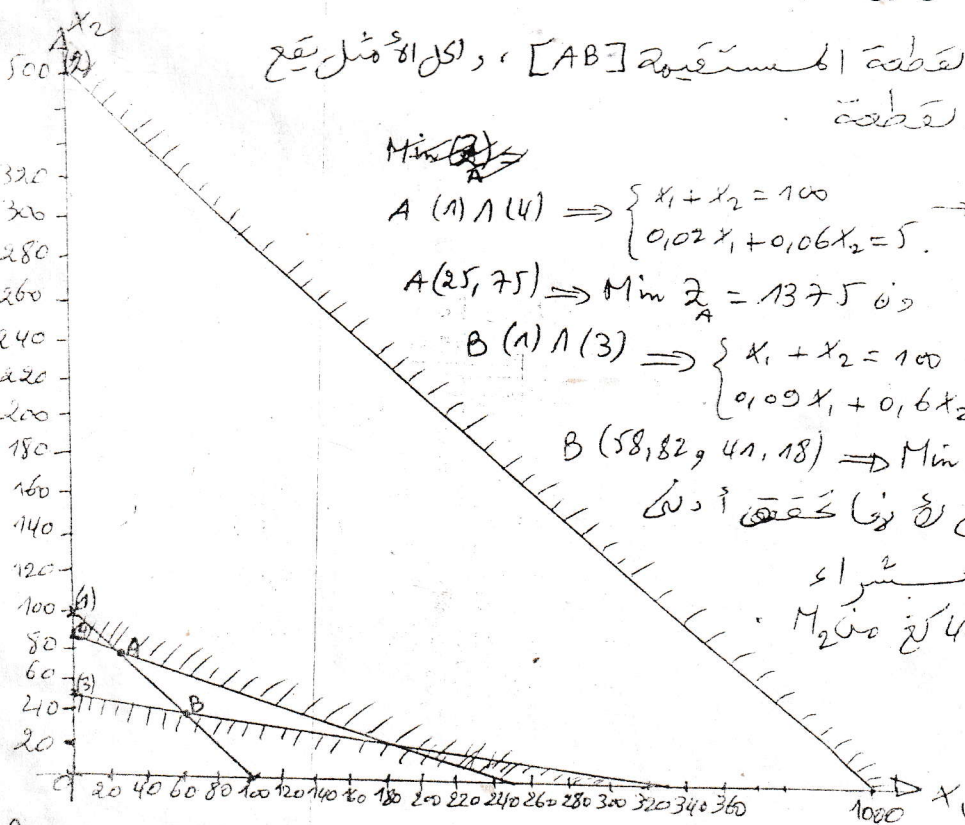 لقطعة المستقيمة [AB] ، والحل الأمثل يقع
لقطعة
Min (Z) =
A
A (1) ∧ (4) ⇒ { x₁ + x₂ = 100 →
0,02x₁ + 0,06x₂ = 5.
A(25, 75) ⇒ Min Z_A = 1375 ون
B (1) ∧ (3) ⇒ { x₁ + x₂ = 100
0,09x₁ + 0,6x₂
B (58,82, 41,18) ⇒ Min
تحقق أدنى
بشراء
كغ من M₂
X₂
500 (2)
320
300
280
260
240
220
200
180
160
140
120
100 (1)
80 (4) A
60
40 (3) B
20
0 20 40 60 80 100 120 140 160 180 200 220 240 260 280 300 320 340 360 1000 X₁